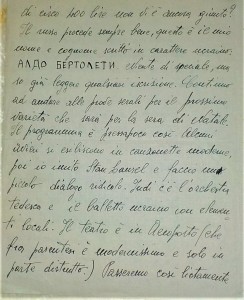 di circa 3000 lire non ti è ancora giunto?
Il russo procede sempre bene, questo è il mio
nome e cognome scritto in carattere ucraino:
АЛДО БЕРТОЛЕТИ niente di speciale, ma
so già leggere qualsiasi iscrizione. Continuo
ad andare alle prove serali per il prossimo
varietà che sarà per la sera di
Il programma è pressapoco così Alcuni
si esibiscono in canzonette moderne,
poi io imito Stan Laurel e faccio un
piccolo dialogo ridicolo. Indi c'è l'orchestra
tedesca e il balletto ucraino con
ti locali. Il teatro è in (che
fra parentesi è modernissimo e solo in
parte distrutto.) Passeremo così lietamente